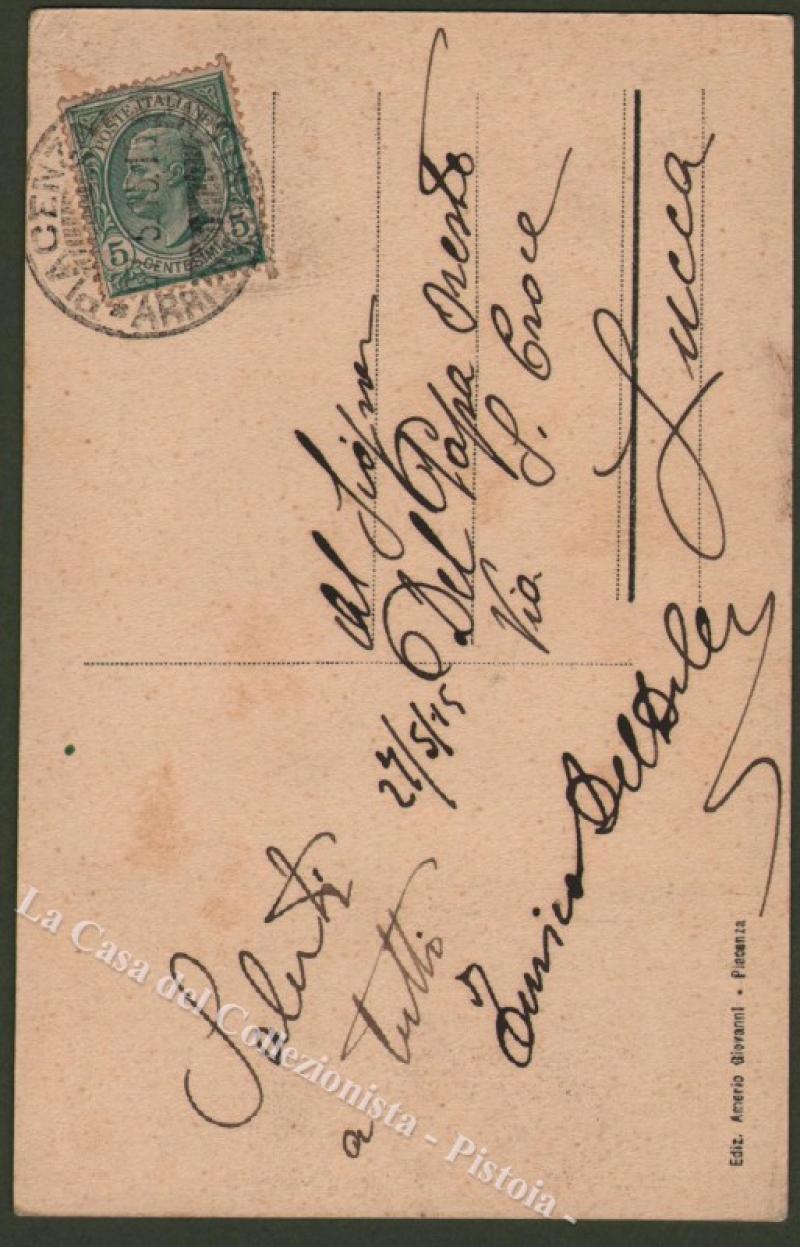 POSTE ITALIANE
5 5
CENTESIMI
PIACENZA
ARRI
Al Signor
Del Papa Oreste
Via S. Croce
Lucca
27/5/15
Saluti
a tutti
Enrico Del
Ediz. Amerio Giovanni - Piacenza
La Casa del Collezionista - Pistoia -